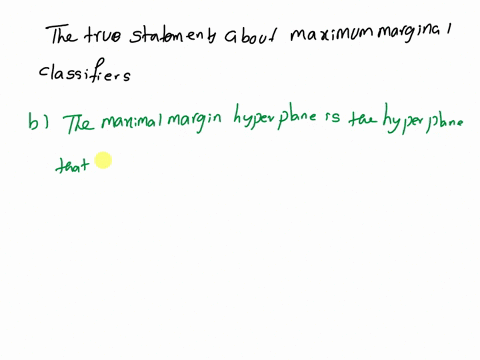 The true statements about maximum marginal
classifiers
b) The maximal margin hyperplane is the hyperplane
that